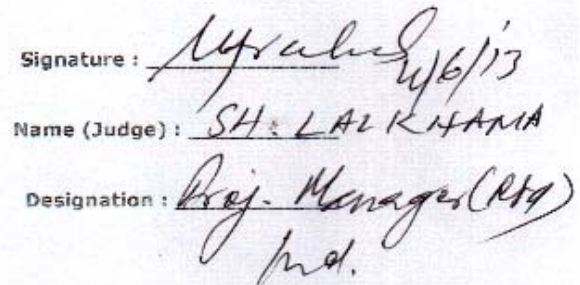 Signature : 4/6/13
Name (Judge) : SH. LALKHAMA
Designation : Proj. Manager (Rtd)
Ind.